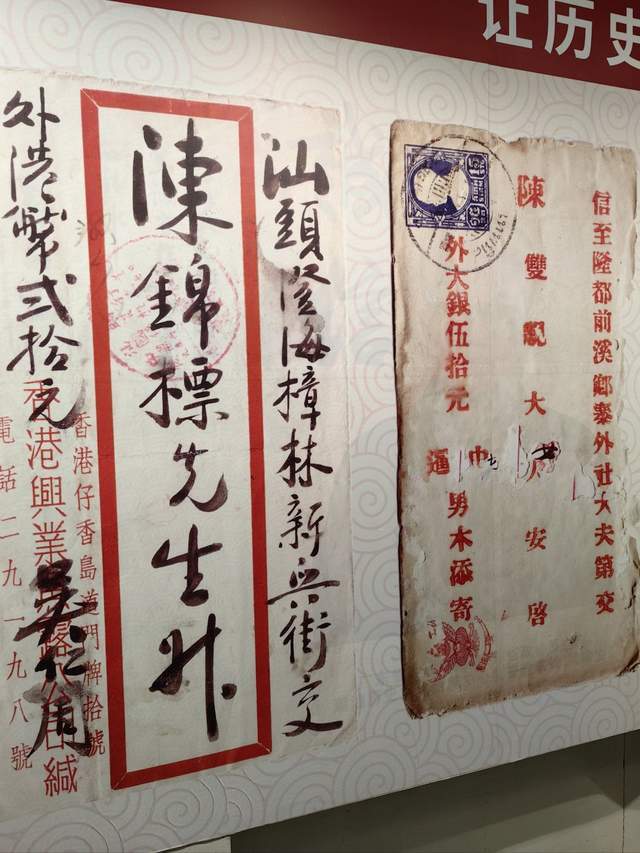 让历史
汕頭澄海樟林新興街交
陳錦標先生升
外港幣弐拾元
香港興業
香港仔香島道門牌拾號
電話二九一九八號
信至隆都前溪鄉寨外社大夫第交
陳雙親大人安啓
外大銀伍拾元
暹
中
男木添寄